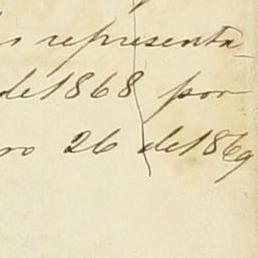 s representa-
de 1868 por
ro 26 de 1869